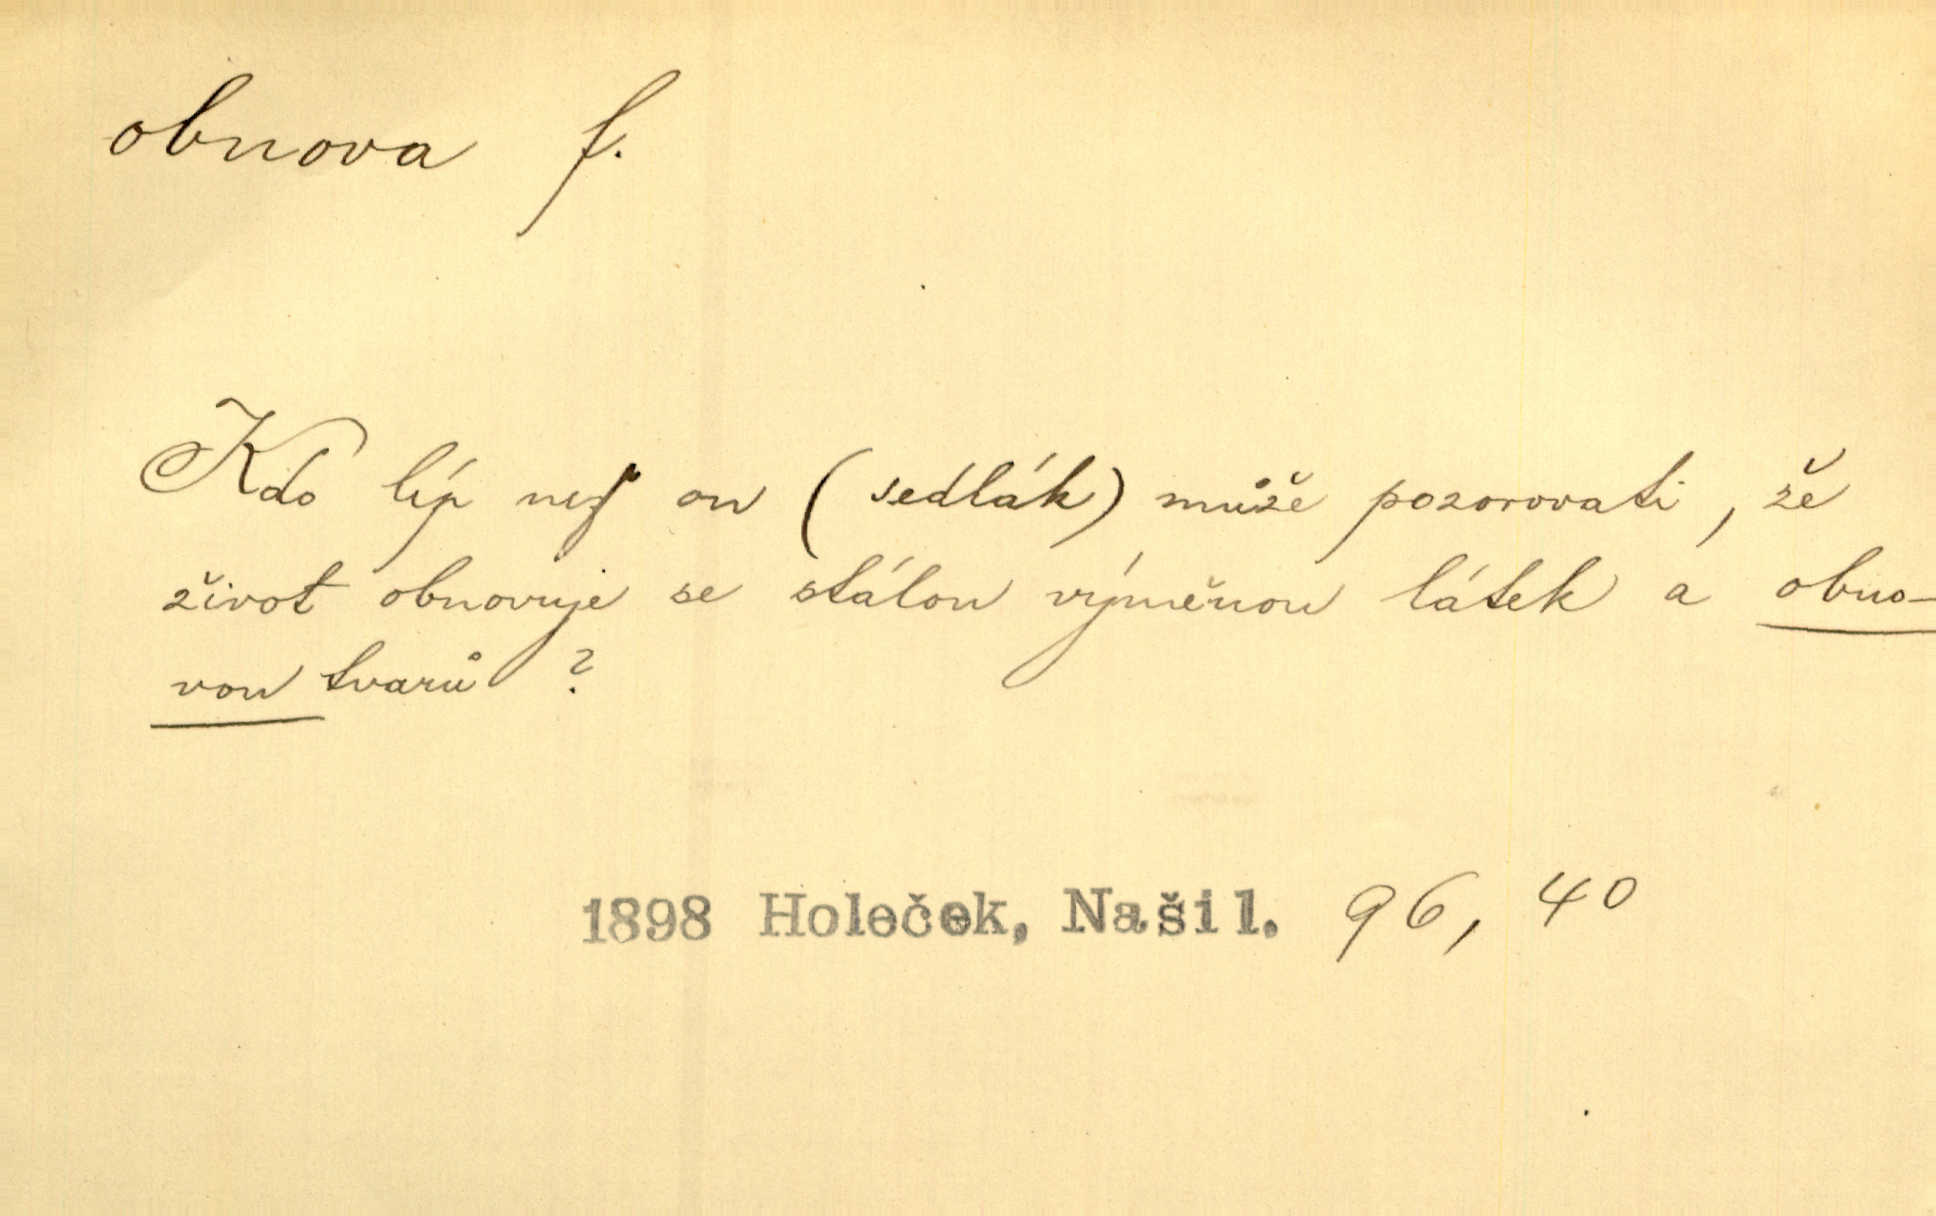 obnova f.
Kdo líp než on (sedlák) může pozorovati, že
život obnovuje se stálou výměnou látek a obno-
vou tvarů?
1898 Holeček, Našil. 96, 40